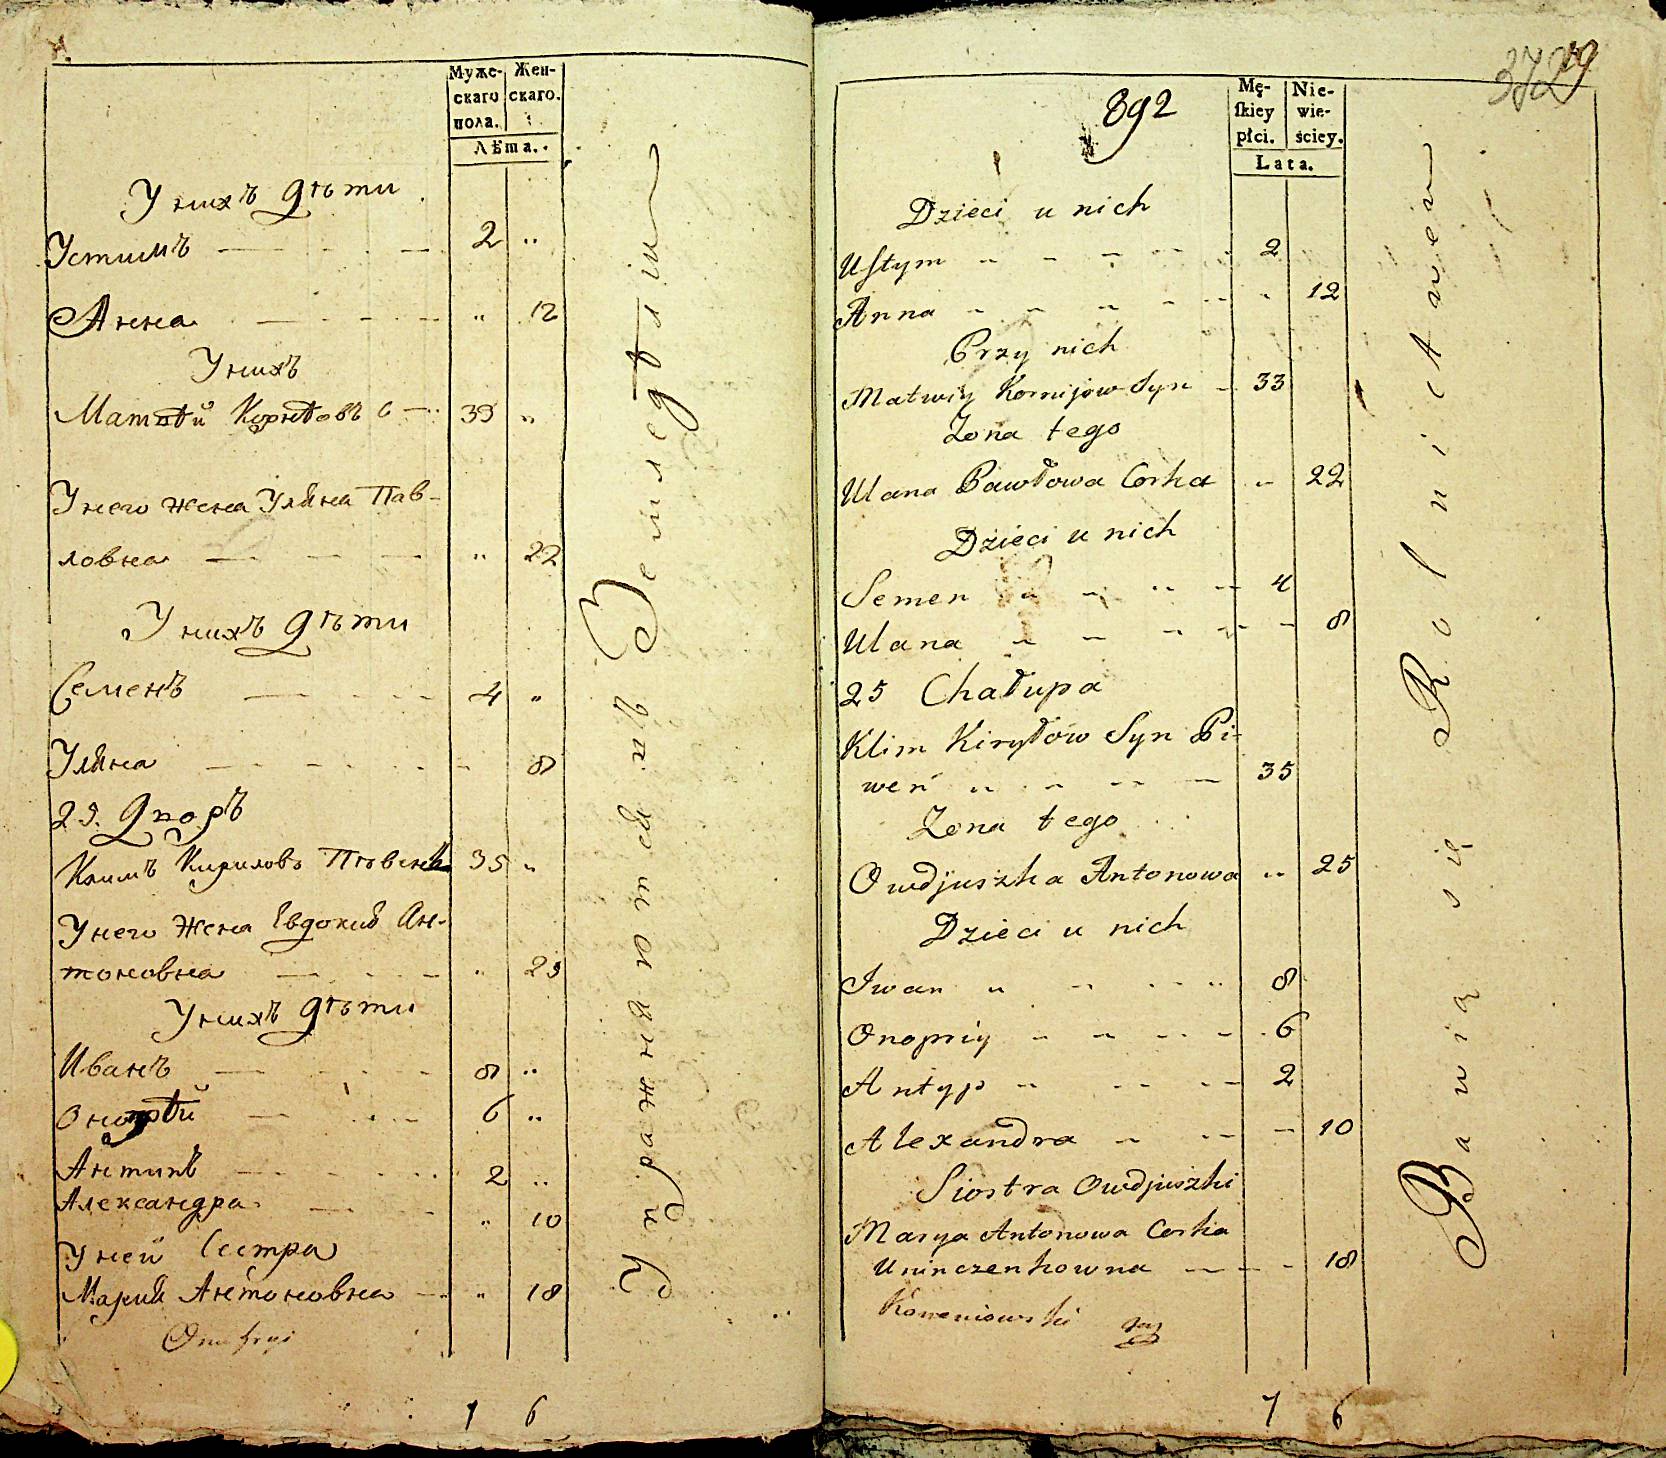 Муже-
скаго
пола.
Жен-
скаго.
Лѣта.
У нихъ дѣти
Устимъ 2 „
Анна „ 12
У нихъ
Матвѣй Корнѣовъ с 33 „
У него жена Уляна Пав-
ловна „ 22
У нихъ дѣти
Семенъ 4 „
Уляна 8
25. Дворъ
Климъ Кириловъ Пѣвень 35 „
У него жена Евдокия Ан-
тоновна „ 25
У нихъ дѣти
Иванъ 8 „
Онопрѣй 6 „
Антипъ 2 „
Александра „ 10
У ней сестра
Мария Антоновна „ 18
Onufryi
7 6
Упражняются въ Земледѣлiи
372
19
892
Mę-
ſkiey
płci.
Nie-
wie-
ściey.
Lata.
Dzieci u nich
Uſtym 2
Anna „ 12
Przy nich
Matwiy Kornijow Syn 33
Zona tego
Ulana Pawłowa Corka „ 22
Dzieci u nich
Semen 4
Ulana 8
25 Chałupa
Klim Kiryłow Syn Pi-
weń 35
Zona tego
Owdjuszka Antonowa „ 25
Dzieci u nich
Iwan 8
Onopriy 6
Antyp 2
Alexandra 10
Siostra Owdjuszki
Marya Antonowa Corka
Uninczenkowna 18
7 6
Bawią się Rolnictwem